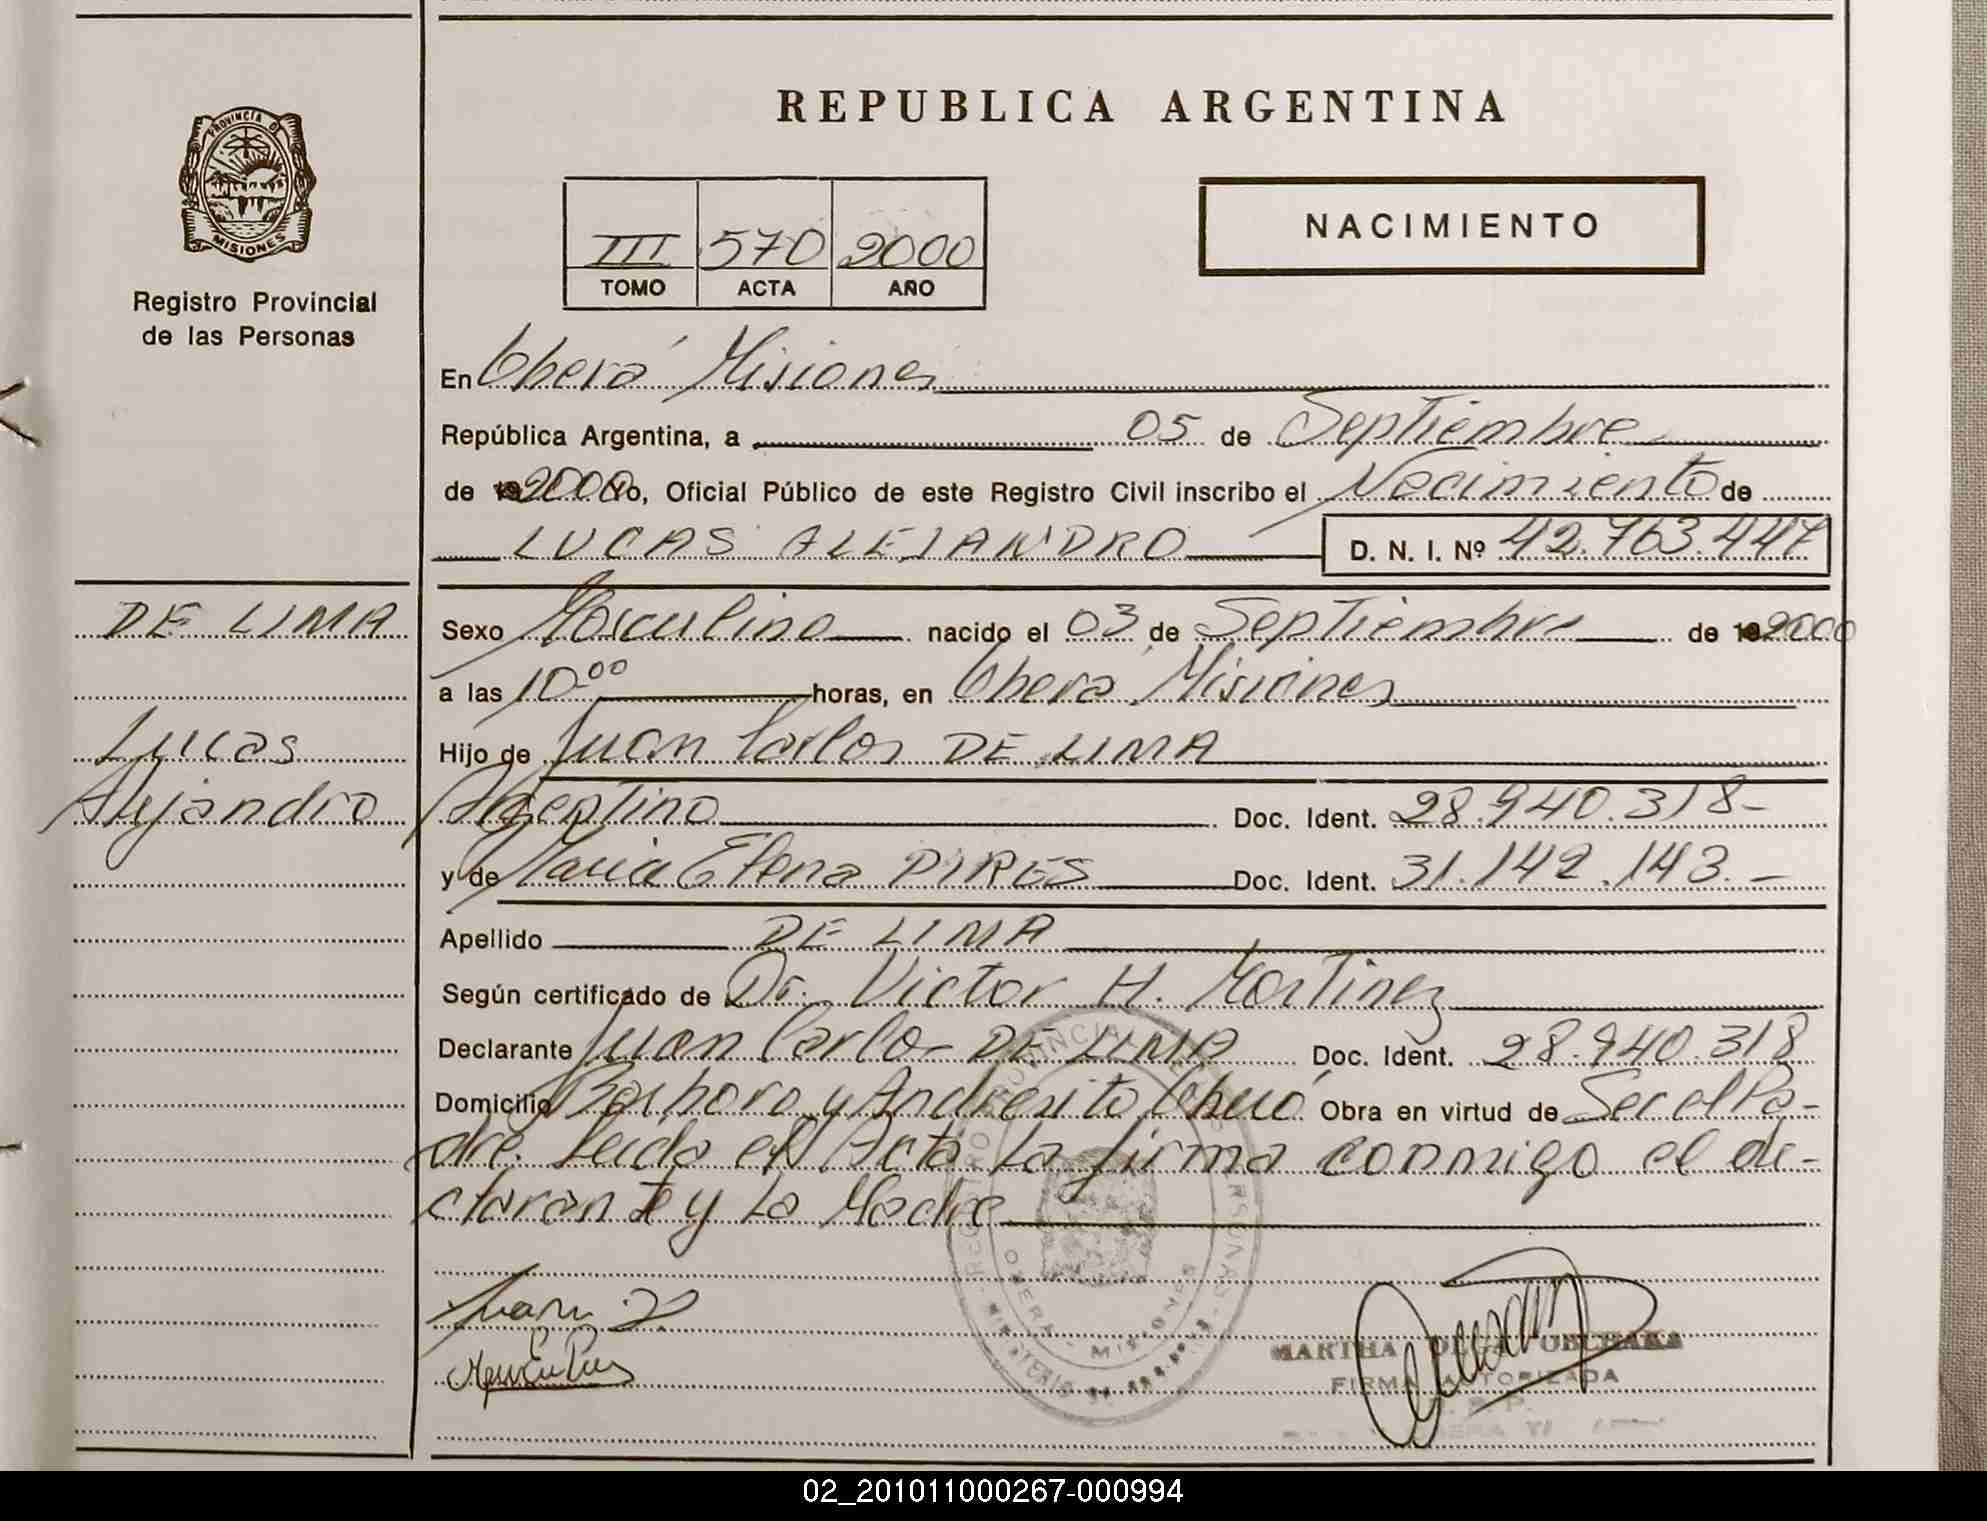 REPUBLICA ARGENTINA
PROVINCIA DE
MISIONES
Registro Provincial
de las Personas
III 570 2000
TOMO ACTA AÑO
NACIMIENTO
En Oberá Misiones
República Argentina, a 05 de Septiembre
de 2000 Yo, Oficial Público de este Registro Civil inscribo el Nacimiento de
LUCAS ALEJANDRO D. N. I. Nº 42.763.447
DE LIMA
Lucas
Alejandro
Sexo Masculino nacido el 03 de Septiembre de 2000
a las 10.00 horas, en Oberá Misiones
Hijo de Juan Carlos DE LIMA
Argentino Doc. Ident. 28.940.318-
y de Maria Elena PIRES Doc. Ident. 31.142.143.-
Apellido DE LIMA
Según certificado de Dr. Victor H. Martinez
Declarante Juan Carlos DE LIMA Doc. Ident. 28.940.318
Domicilio y Andresito Oberá Obra en virtud de Ser el Pa-
dre. Leida el Acta La firma conmigo el de-
clarante y La Madre
Juan
REGISTRO PROVINCIAL DE LAS PERSONAS
OBERA - MISIONES
MINISTERIO DE
MARTHA OLGA
FIRMA AUTORIZADA
02_201011000267-000994